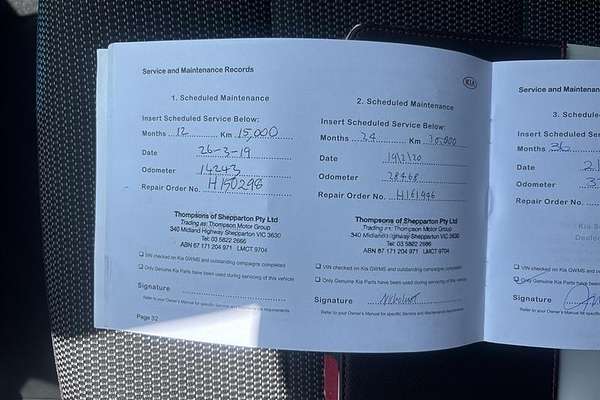 Service and Maintenance Records
1. Scheduled Maintenance
Insert Scheduled Service Below:
Months 12 Km 15,000
Date 26-3-19
Odometer 14243
Repair Order No. H150298
Thompsons of Shepparton Pty Ltd
Trading as: Thompson Motor Group
340 Midland Highway Shepparton VIC 3630
Tel: 03 5822 2666
ABN 67 171 204 971 LMCT 9704
VIN checked on Kia GWMS and outstanding campaigns completed
Only Genuine Kia Parts have been used during servicing of this vehicle
Signature
Refer to your Owner's Manual for specific Service and Maintenance requirements
Page 32
KIA
2. Scheduled Maintenance
Insert Scheduled Service Below:
Months 24 Km 30,000
Date 19/2/20
Odometer 28468
Repair Order No. H161446
Thompsons of Shepparton Pty Ltd
Trading as: Thompson Motor Group
340 Midland Highway Shepparton VIC 3630
Tel: 03 5822 2666
ABN 67 171 204 971 LMCT 9704
VIN checked on Kia GWMS and outstanding campaigns completed
Only Genuine Kia Parts have been used during servicing of this vehicle
Signature
Refer to your Owner's Manual for specific Service and Maintenance requirements
Service and Maintenan
3. Schedule
Insert Scheduled Serv
Months 36
Date 2
Odometer 3
Repair Order No.
Kia S
Deale
VIN checked on Kia GWMS
Only Genuine Kia Parts have
Signature
Refer to your Owner's Manual for